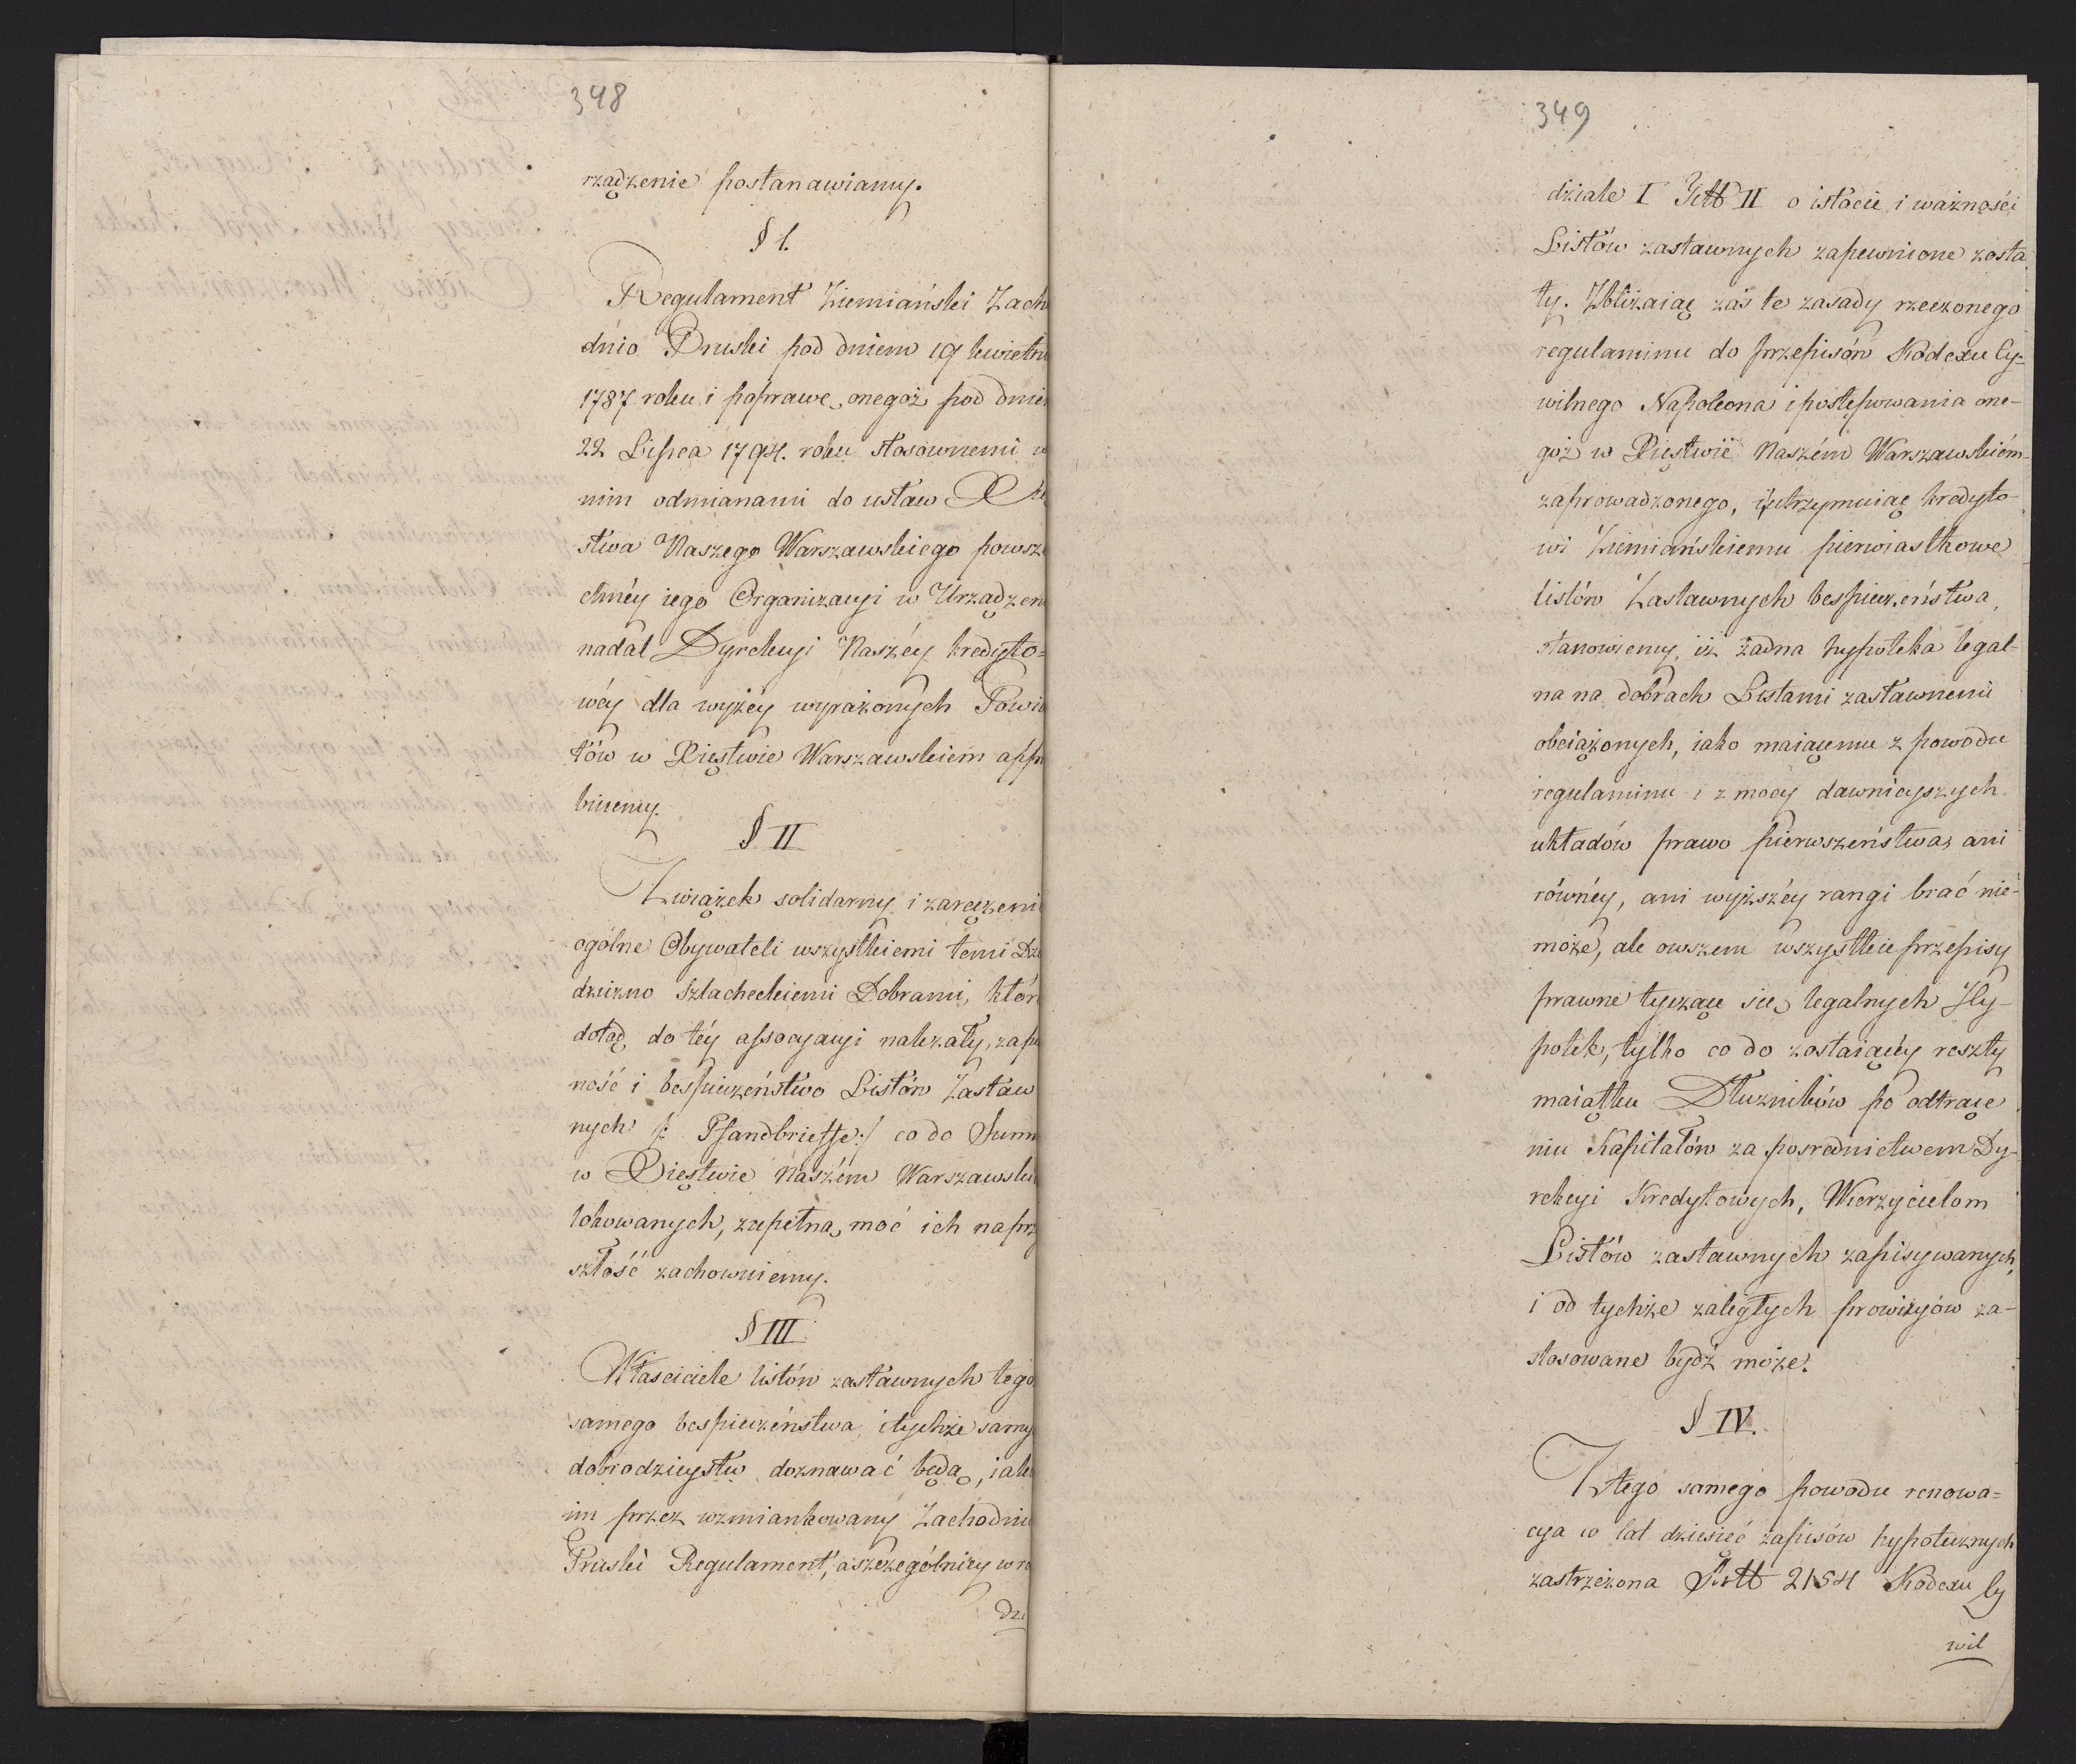 348
rządzenie postanawiamy.
§ 1.
Regulament Ziemiański Zach
dnio Pruski pod dniem 19 kwietni
1787 roku i poprawę onegoż pod dnie
22 Lipca 1794. roku stosownemi w
nim odmianami do ustaw X
stwa Naszego Warszawskiego powsze
chnéy iego Organizacyi w Urządzen
nadal Dyrekcyi Naszéy kredyto=
wéy dla wyżéy wyrażonych Powia
tów w Xięstwie Warszawskiem appr
buiemy.
§ II
Związek solidarny i zaręczeni
ogólne Obywateli wszystkiemi temi Dzie
dziczno Szlacheckiemi Dobrami, któr
dotąd do téy associacyi należały, zape
ność i bespieczeństwo Listów Zastaw
nych /: Pfandbrieffe:/ co do Summ
w Xięstwie Naszém Warszawski
lokowanych, zupełną moc ich na prz
szłość zachowuiemy.
§ III
Właściciele listów zastawnych tego
samego bespieczeństwa i tychże samy
dobrodzieystw doznawać będą, iak
im przez wzmiankowany Zachodnio
Pruski Regulament, a szczególniéy w ro
dzi
349
dziale I Titt II o istocie i ważności
Listów zastawnych zapewnione zosta
ły. Zbliżaiąc zaś te zasady rzeczonego
regulaminu do przepisów Kodexu Cy=
wilnego Napoleona i postępowania one-
goż w Xięstwie Naszém Warszawskiém
zaprowadzonego, i utrzymuiąc kredyto-
wi Ziemiańskiemu pierwiastkowe
listów Zastawnych bespieczeństwa,
stanowiemy, iż żadna hypoteka legal-
na na dobrach Listami zastawnemi
obciążonych, iako maiącemu z powodu
regulaminu i z mocy dawnieyszych
układów prawo pierwszeństwa, ani
równéy, ani wyższéy rangi brać nie-
może, ale owszem wszystkie przepisy
prawne tyczące się legalnych Hy-
potek, tylko co do zostaiącéy reszty
maiątku Dłużników po odtrące
niu Kapitałów za posrednictwem Dy-
rekcyi Kredytowych, Wierzycielom
Listów zastawnych zapisywanych,
i od tychże zaległych prowizyów za-
stosowane bydź może.
§ IV.
Z tego samego powodu renowa=
cya w lat dziesięć zapisów hypotecznych
zastrzeżona Artt 2154 Kodexu Cy
wil